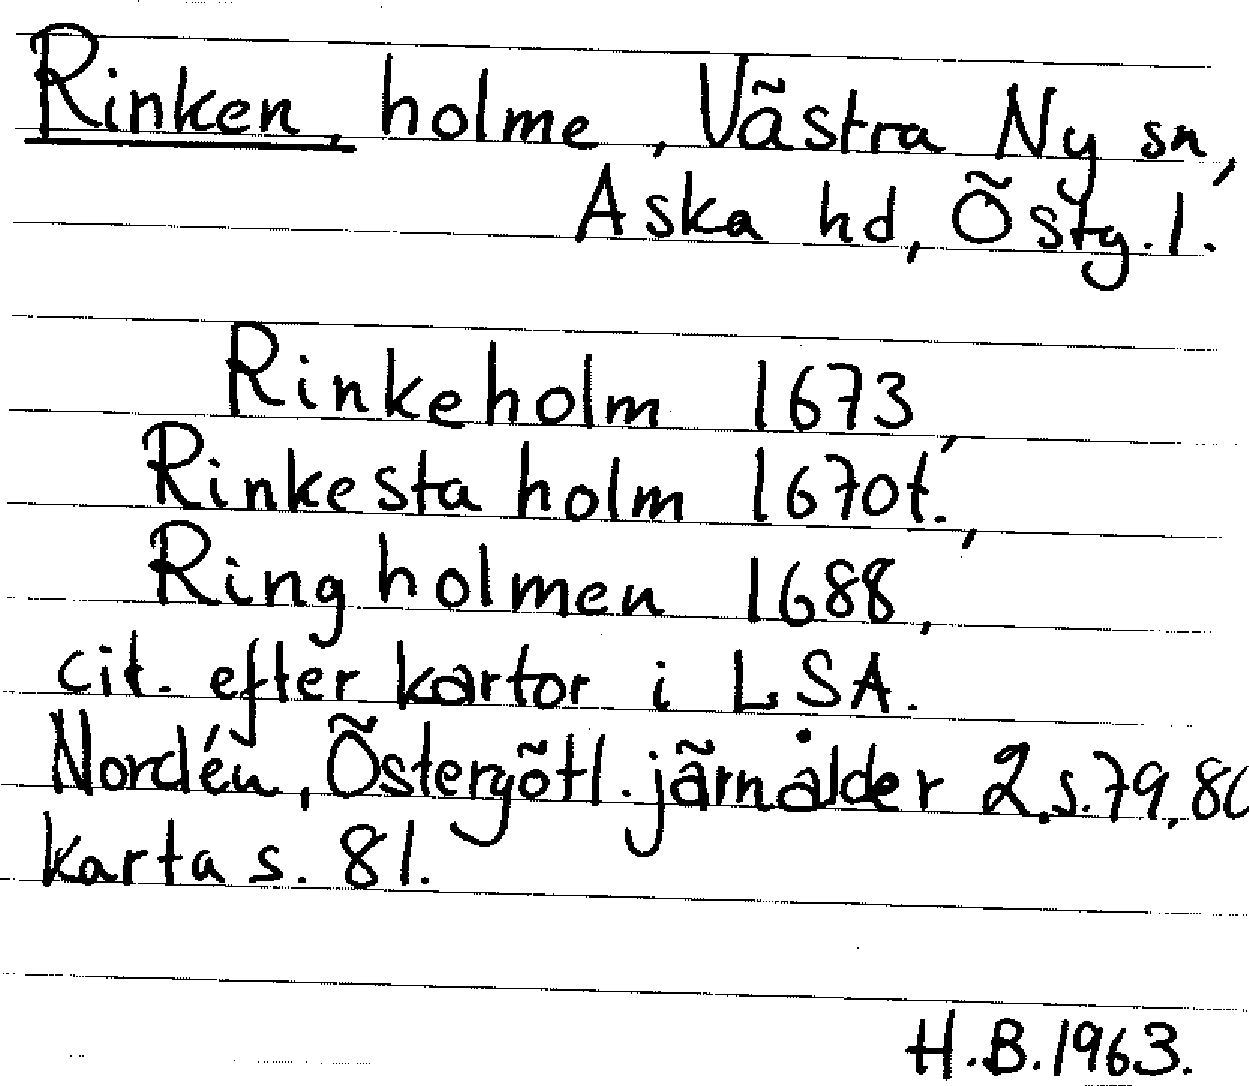 Rinken, holme, Västra Ny sn,
Aska hd, Östg.l.
Rinkeholm 1673,
Rinkesta holm 1670t.,
Ringholmen 1688,
cit. efter kartor i LSA.
Nordén, Östergötl. järnålder 2.s.79,80
karta s. 81.
H.B.1963.